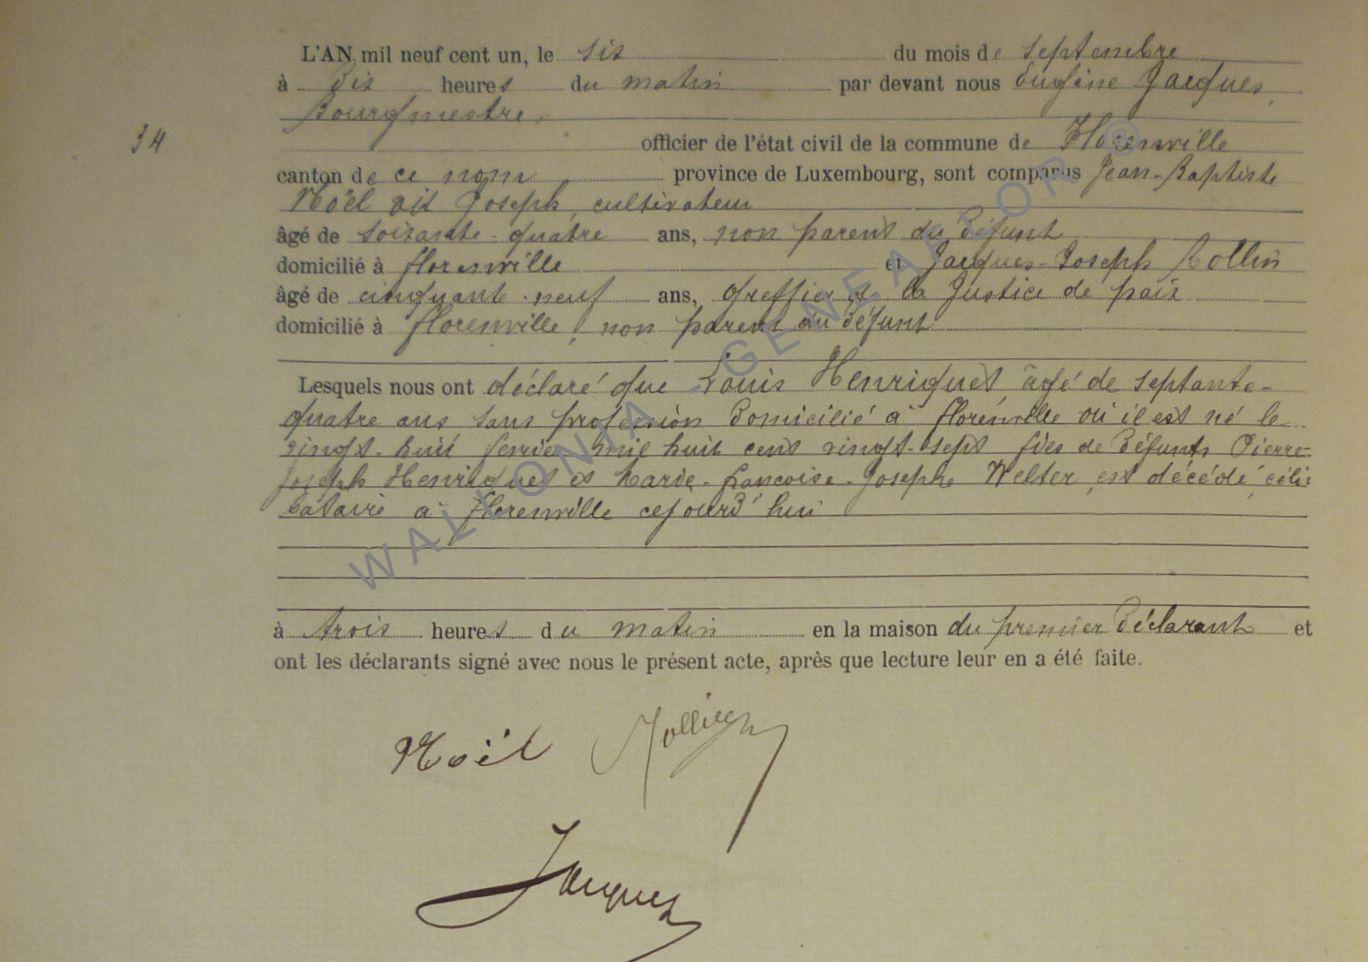 L'AN mil neuf cent un, le six du mois de septembre
à dix heures du matin par devant nous Eugène Jacques,
Bourgmestre,
34 officier de l'état civil de la commune de Florenville
canton de ce nom province de Luxembourg, sont comparus Jean-Baptiste
Noël dit Joseph, cultivateur
âgé de soixante-quatre ans, non parent du défunt
domicilié à florenville et Jacques-Joseph Rollin
âgé de cinquante-neuf ans, greffier de la Justice de paix
domicilié à florenville, non parent du défunt
Lesquels nous ont déclaré que Louis Henriquet âgé de septante-
quatre ans sans profession domicilié à florenville où il est né le
vingt-huit février mil huit cent vingt-sept fils de défunts Pierre-
Joseph Henriquet et Marie-Francoise-Josephe Welter, est décédé céli-
bataire à florenville cejourd'hui
à trois heures du matin en la maison du premier déclarant et
ont les déclarants signé avec nous le présent acte, après que lecture leur en a été faite.
Noël
Jacques
WALLONIA - GENEAFLOR ©